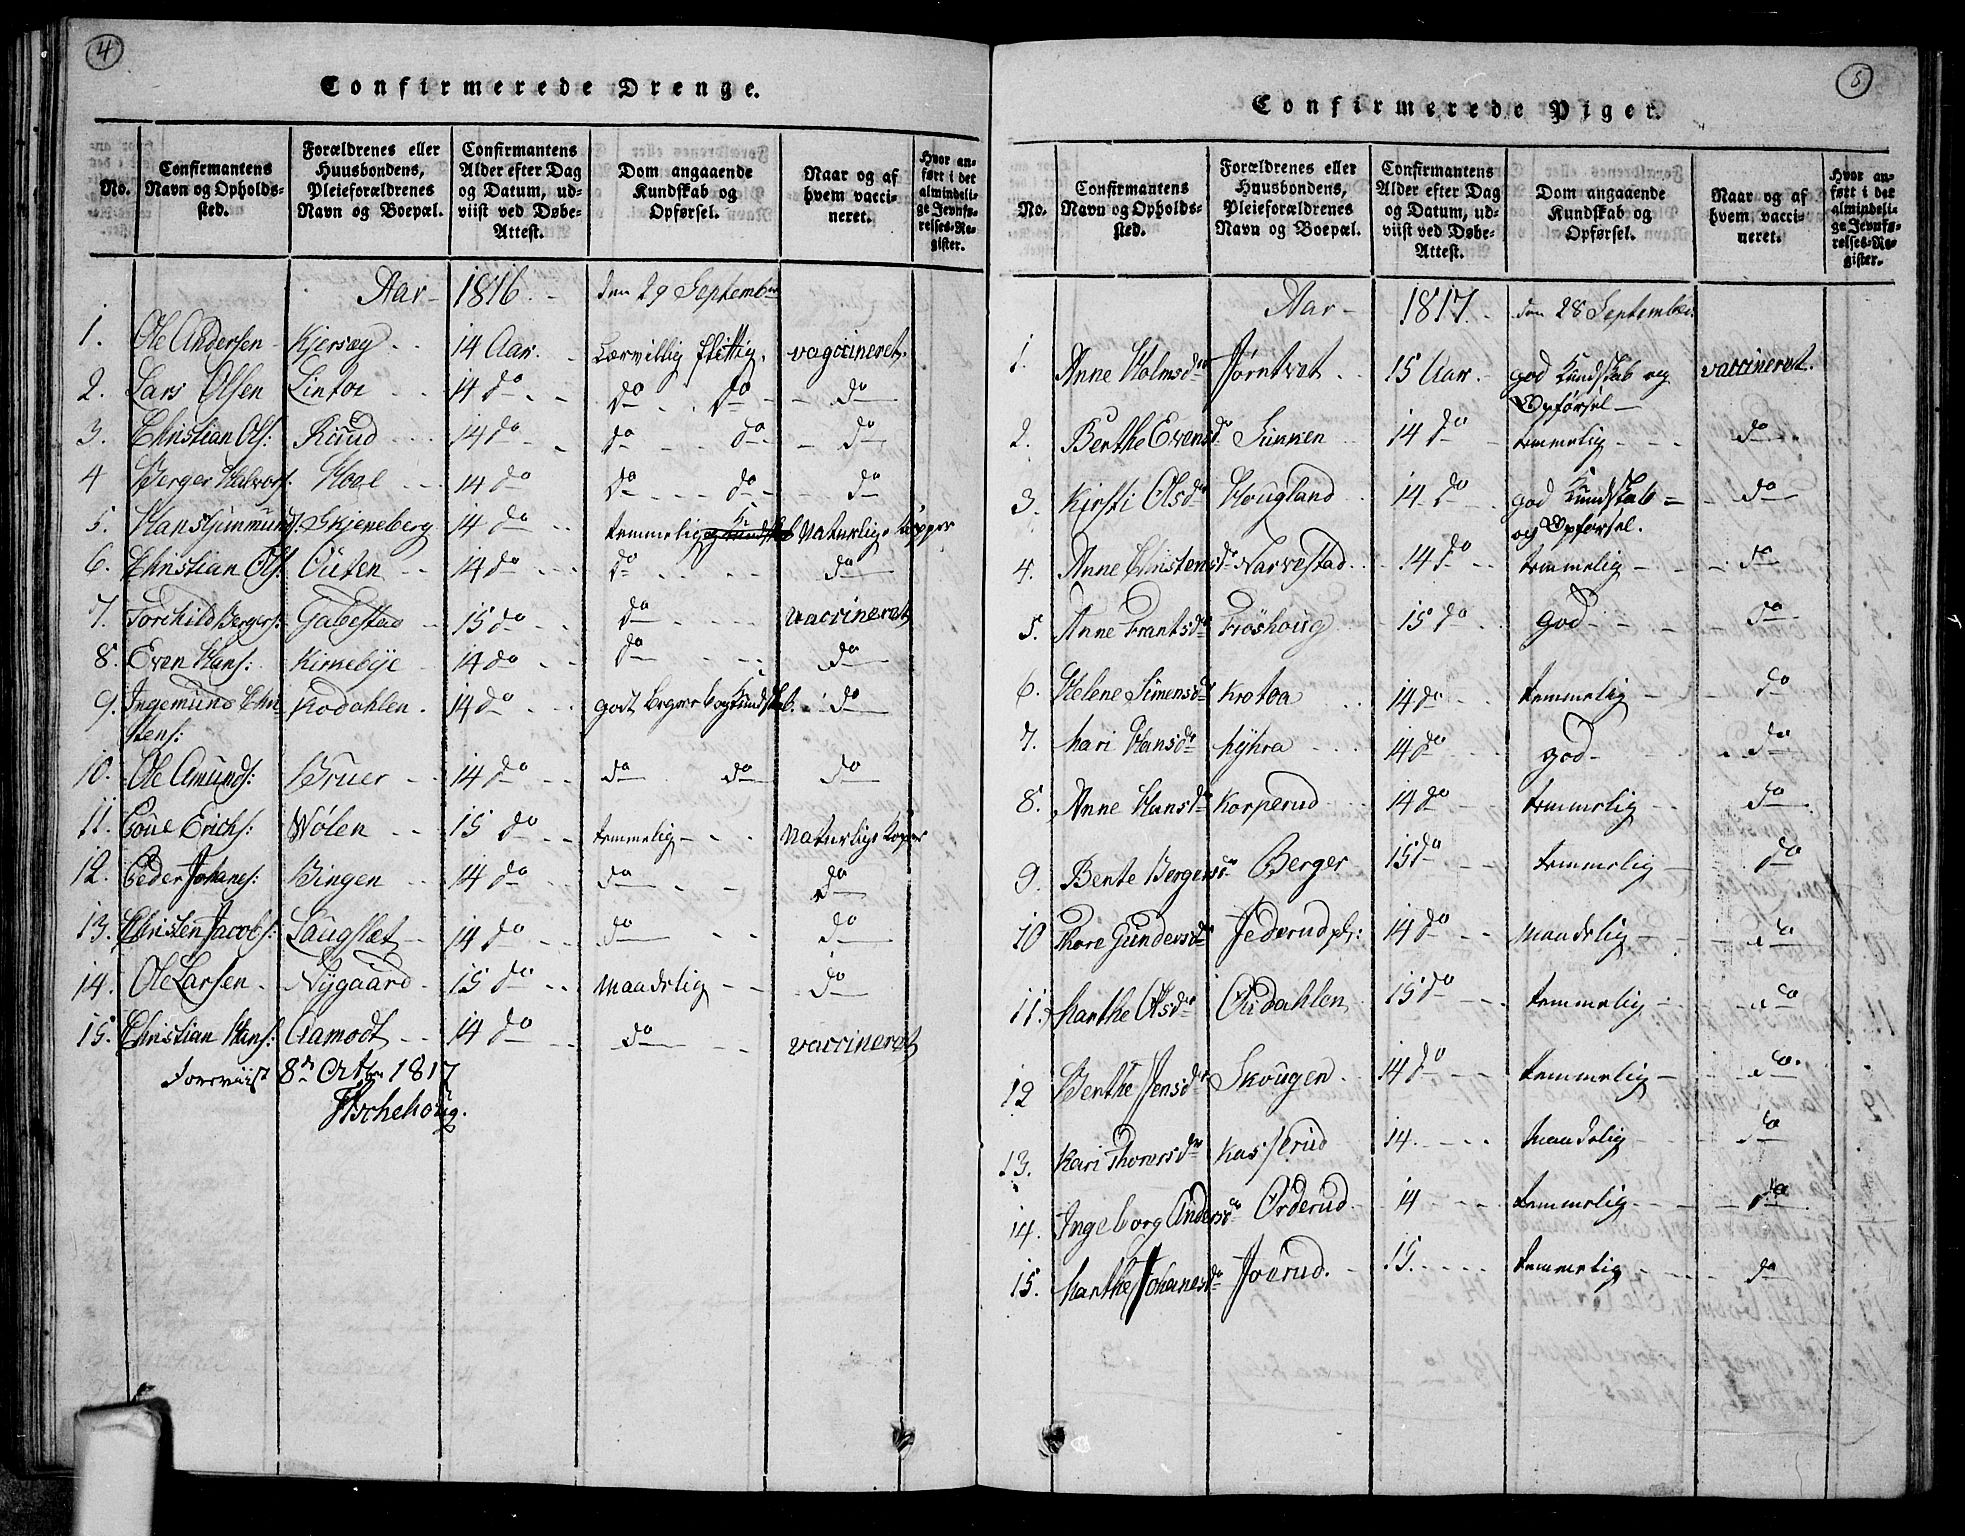 4
Confirmerede Drenge.
No.
Confirmantens Navn og Opholds-sted.
Forældrenes eller Huusbondens, Pleieforældrenes Navn og Boepæl.
Confirmantens Alder efter Dag og Datum, ud-viist ved Døbe-Attest.
Dom angaaende Kundskab og Opførsel.
Naar og af hvem vacci-neret.
Hvor an-ført i det almindeli-ge Jevnfø-relses-Re-gister.
Aar 1816 den 29 September
1. Ole Andersen Kjersæg 14 Aar Lærvillig flittig. vaccineret.
2. Lars Olsen Lintoe 14 do do do do
3. Christian Ols: Ruud 14 do do do do
4 Berger Halvors: Hoel 14 do do do do
5. Hans Gummunds: Skjeneberg 14 do temmelig Naturlige Kopper
6. Christian Ols: Outen 14 do do do
7. Torchild Bergers: Gabestad 15 do do vaccineret
8. Even Hans: Kirnebye 14 do do do
9. Ingemund Chri-stens: Kodahlen 14 do godt Begreb og Kundskab do
10. Ole Amunds: Bruer 14 do do do do
11. Poul Erichs: Wølen 15 do temmelig Naturlige Koper
12. Peder Johanes: Bingen 14 do do do
13. Christen Jacobs: Laugslet 14 do do do
14. Ole Larsen Nygaard 15 do maadelig do
15. Christian Hans: Aamodt 14 do do vaccineret
Foreviist 8de Octbr 1817
Aschehoug.
5
Confirmerede Piger.
No.
Confirmantens Navn og Opholds-sted.
Forældrenes eller Huusbondens, Pleieforældrenes Navn og Boepæl.
Confirmantens Alder efter Dag og Datum, ud-viist ved Døbe-Attest.
Dom angaaende Kundskab og Opførsel.
Naar og af hvem vacci-neret.
Hvor an-ført i det almindeli-ge Jevnfø-relses-Re-gister.
Aar 1817. den 28 September
1. Anne Holmsdr Jørntvet 15 Aar god Kundskab og Opførsel vaccineret.
2. Berthe Evensdr Sunnen 14 do temmelig do
3. Kirsti Olsdr Hougland 14 do god Kundskab og Opførsel. do
4. Anne Christensdr Narvestad 14 do temmelig do
5. Anne Frantsdr Froshoug 15 do God do
6. Helene Simensdr Krotoa 14 do temmelig do
7. Mari Hansdr Myhra 14 do god do
8. Anne Hansdr Korperud 14 do temmelig do
9. Bente Bergersdr Berger 15 do temmelig do
10 Thore Gundersdr Jederud pl: 14 do maadelig do
11. Marthe Olsdr Oudahlen 15 do temmelig do
12 Berthe Jensdr Skougen 14 do temmelig do.
13. Kari Thoresdr Kasserud 14. maadelig do
14. Ingeborg Andersdr Orderud 14 temmelig do
15. Marthe Johanesdr Joerud. 15. temmelig do